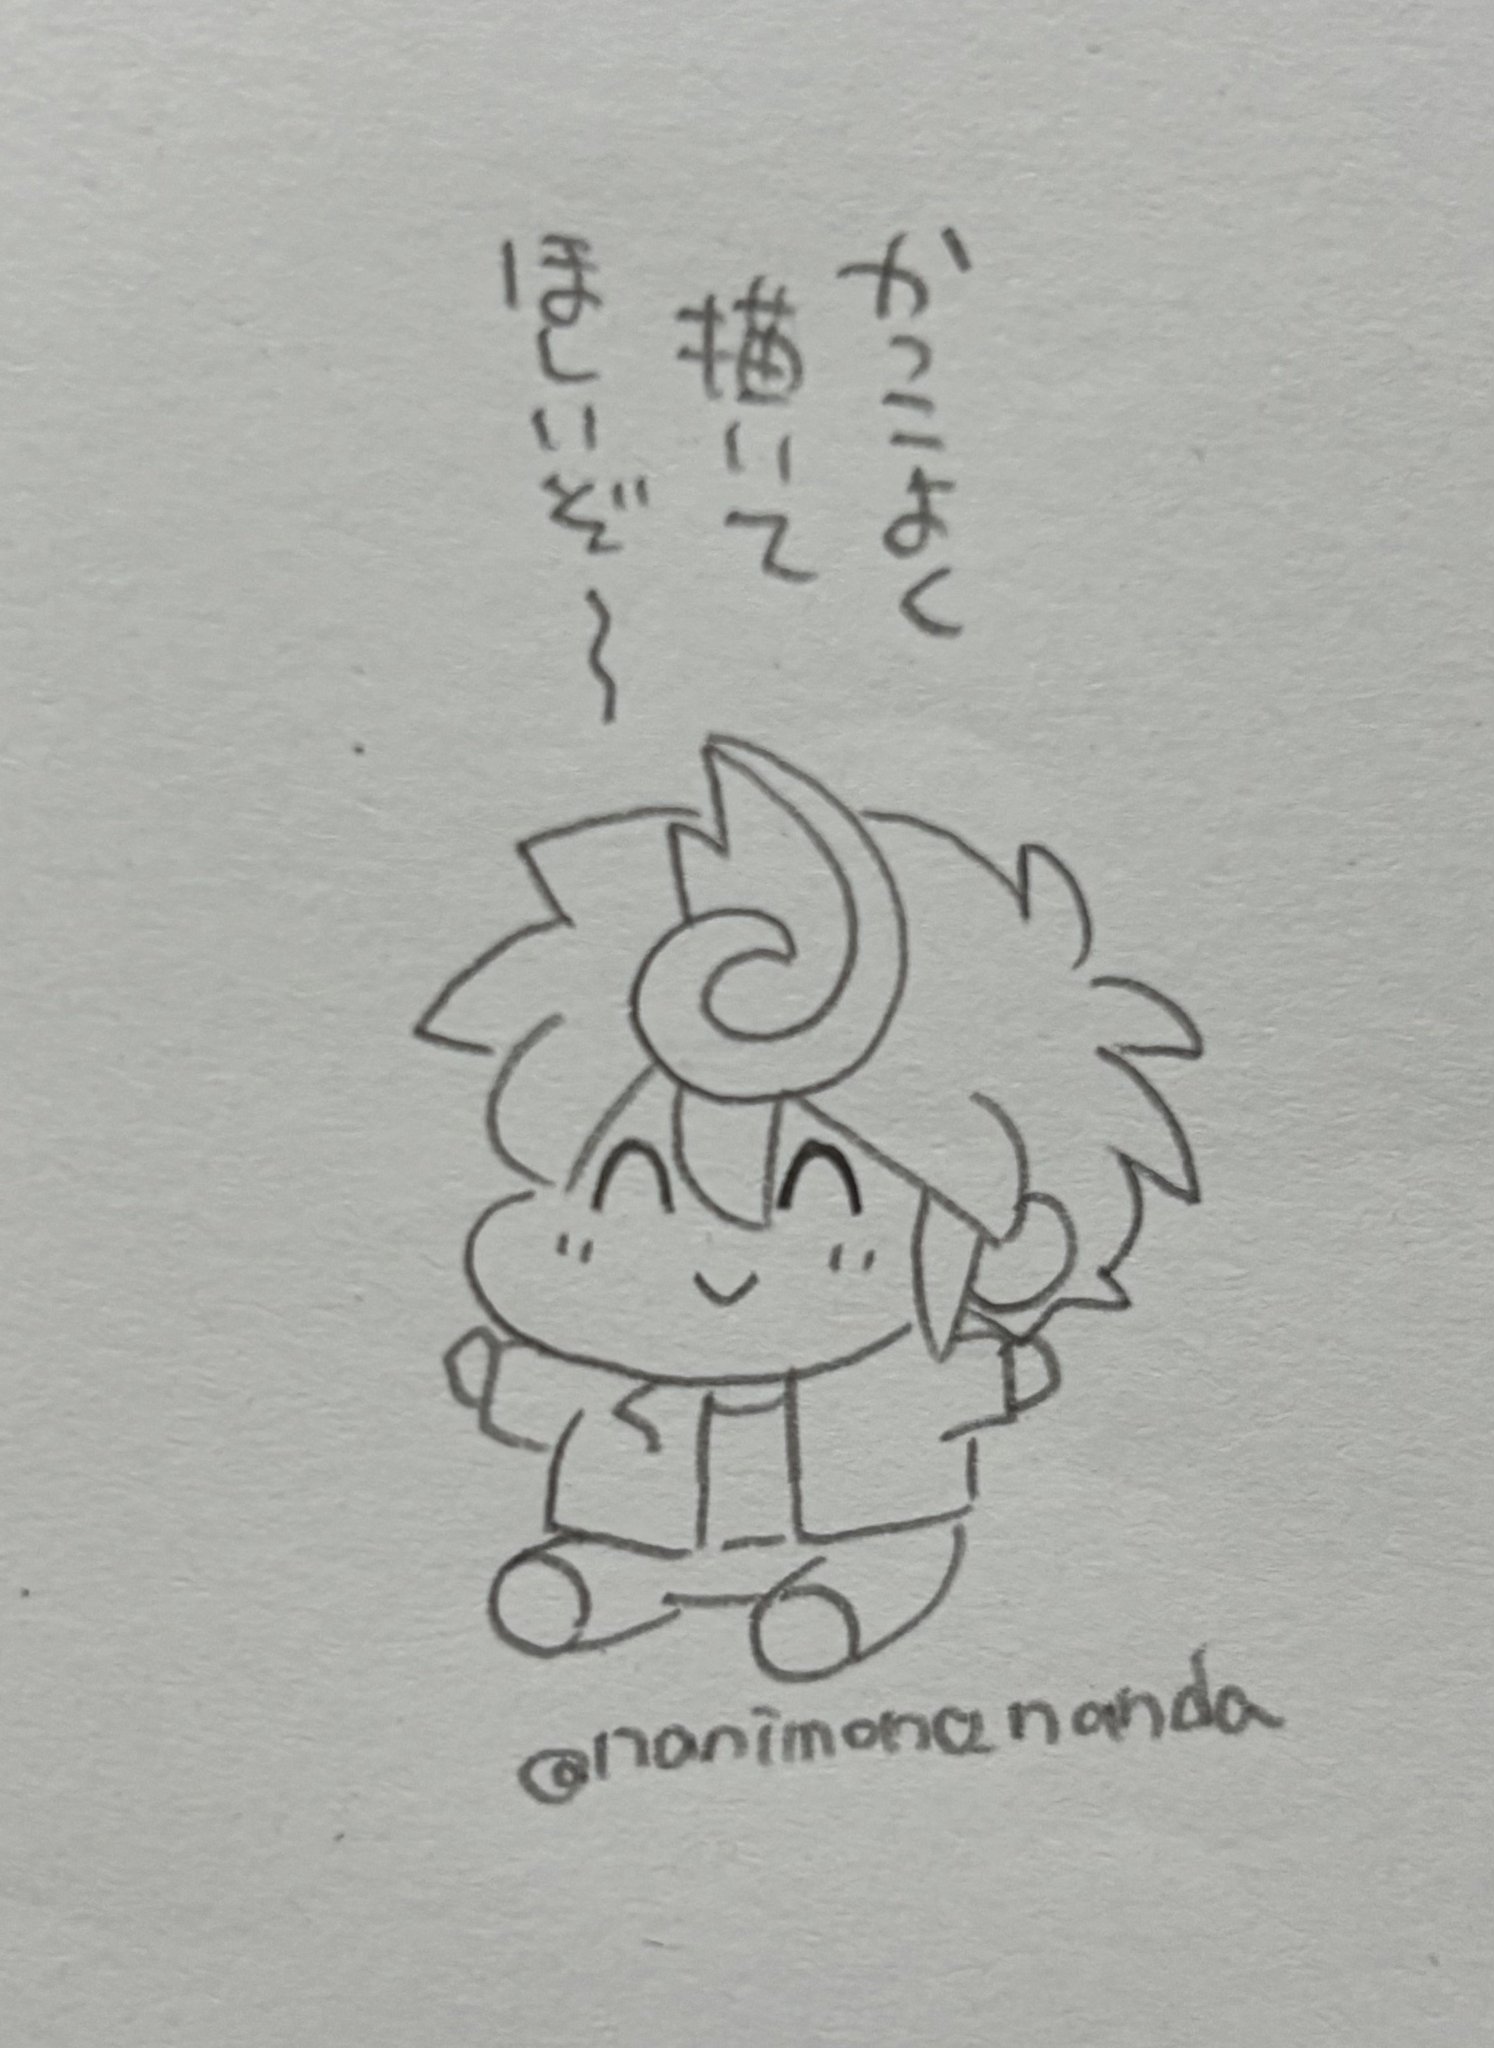 かっこよく
描いて
ほしいぞ〜
@nanimonananda